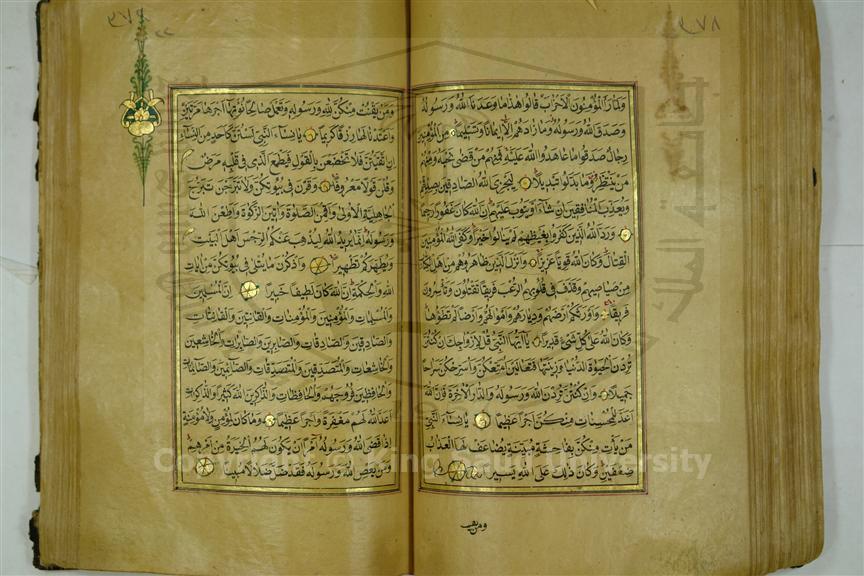 ولما را المؤمنون الاحزاب قالوا هذا ما وعدنا الله ورسوله
وصدق الله ورسوله وما زادهم الا ايمانا وتسليما من المؤمنين
رجال صدقوا ما عاهدوا الله عليه فمنهم من قضى نحبه ومنهم
من ينتظر وما بدلوا تبديلا ليجزى الله الصادقين بصدقهم
ويعذب المنافقين ان شاء او يتوب عليهم ان الله كان غفورا رحيما
ورد الله الذين كفروا بغيظهم لم ينالوا خيرا وكفى الله المؤمنين
القتال وكان الله قويا عزيزا وانزل الذين ظاهروهم من اهل الكتاب
من صياصيهم وقذف في قلوبهم الرعب فريقا تقتلون وتاسرون
فريقا واورثكم ارضهم وديارهم واموالهم وارضا لم تطؤها
وكان الله على كل شئ قديرا يا ايها النبي قل لازواجك ان كنتن
تردن الحيوة الدنيا وزينتها فتعالين امتعكن واسرحكن سراحا
جميلا وان كنتن تردن الله ورسوله والدار الاخرة فان الله
اعد للمحسنات منكن اجرا عظيما يا نساء النبي
من يات منكن بفاحشة مبينة يضاعف لها العذاب
ضعفين وكان ذلك على الله يسيرا
ومن يقنت
ومن يقنت منكن لله ورسوله وتعمل صالحا نؤتها اجرها مرتين
واعتدنا لها رزقا كريما يا نساء النبي لستن كاحد من النساء
ان تقيتن فلا تخضعن بالقول فيطمع الذى في قلبه مرض
وقلن قولا معروفا وقرن في بيوتكن ولا تبرجن تبرج
الجاهلية الاولى واقمن الصلوة واتين الزكوة واطعن الله
ورسوله انما يريد الله ليذهب عنكم الرجس اهل البيت
ويطهركم تطهيرا واذكرن ما يتلى في بيوتكن من ايات
الله والحكمة ان الله كان لطيفا خبيرا ان المسلمين
والمسلمات والمؤمنين والمؤمنات والقانتين والقانتات
والصادقين والصادقات والصابرين والصابرات والخاشعين
والخاشعات والمتصدقين والمتصدقات والصائمين والصائمات
والحافظين فروجهم والحافظات والذاكرين الله كثيرا والذاكرات
اعد الله لهم مغفرة واجرا عظيما وما كان لمؤمن ولا مؤمنة
اذا قضى الله ورسوله امرا ان يكون لهم الخيرة من امرهم
ومن يعص الله ورسوله فقد ضل ضلالا مبينا
Copyright © King Saud University